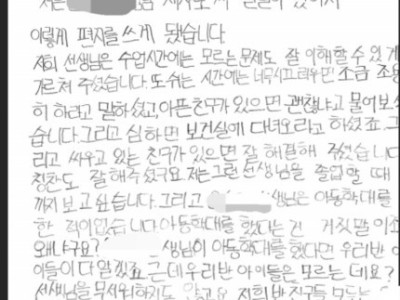 이렇게 편지를 쓰게 됐습니다.
저희 선생님은 수업시간에는 모르는 문제도 잘 이해할 수 있게
가르쳐 주셨습니다. 또 쉬는 시간에는 너무 시끄러우면 조금 조용
히 하라고 말하셨고, 아픈 친구가 있으면 괜찮냐고 물어보셨
습니다. 그리고 심하면 보건실에 다녀오라고 하셨죠. 그
리고 싸우고 있는 친구가 있으면 잘 해결해 주셨습니다
칭찬도 잘 해주셨구요. 저는 그런 선생님을 졸업할 때
까지 보고 싶습니다. 그리고 생님은 아동학대를
한 적이 없습니다. 아동학대를 했다는 건 거짓말이죠
왜냐구요? 생님이 아동학대를 했다면 우리 반 아
이들이 다 알겠죠. 근데 우리 반 아이들은 모르는데요?
선생님을 무서워하지도 않고요. 저희 반 친구들 모두는